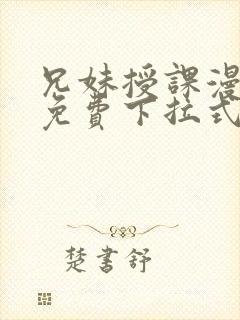 兄妹授課漫
免費下拉式
楚書舒